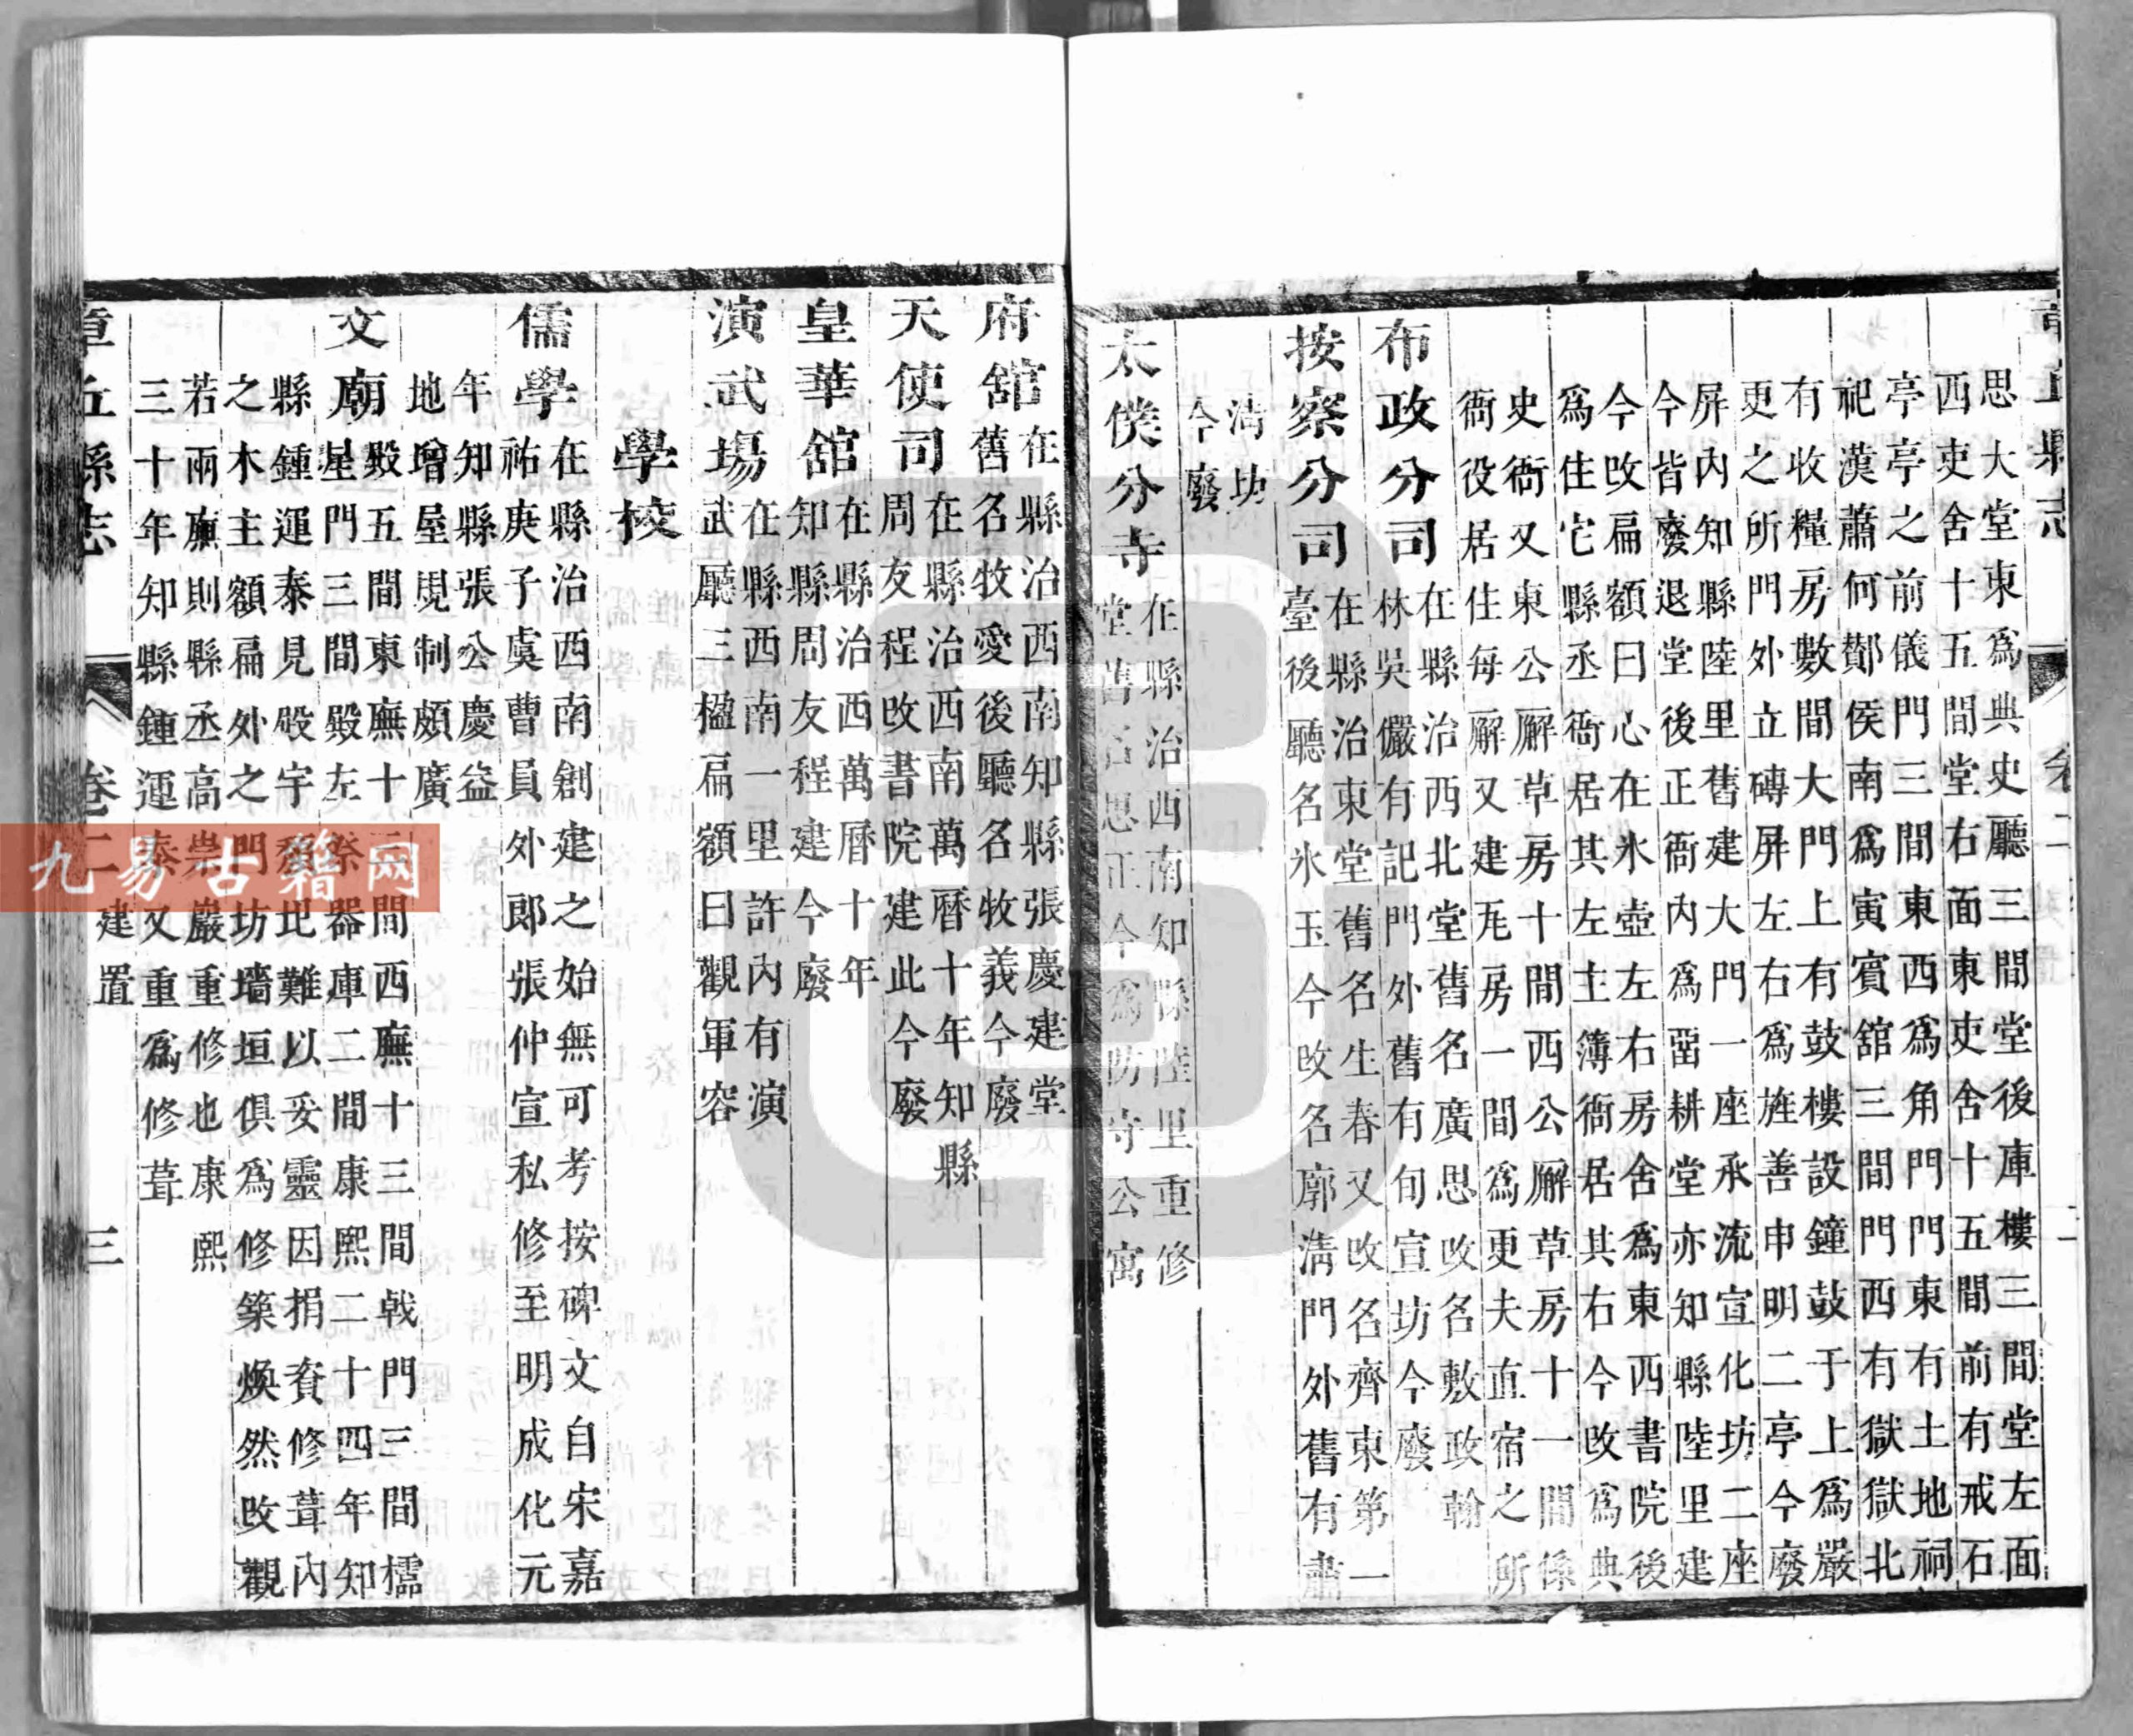 思大堂東爲典史廳三間堂後庫樓三間堂左面
西吏舍十五間堂右面東吏舍十五間前有戒石
亭亭之前儀門三間東西爲角門門東有土地祠
祀漢蕭何鄼侯南爲寅賓舘三間門西有獄獄北
有收糧房數間大門上有鼓樓設鐘鼓于上爲嚴
更之所門外立磚屏左右爲旌善申明二亭今廢
屏内知縣陸里舊建大門一座承流宣化坊二座
今皆廢退堂後正衙内爲畱耕堂亦知縣陸里建
今改扁額曰心在氷壺左右房舍爲東西書院後
爲住宅縣丞衙居其左主簿衙居其右今改爲典
史衙又東公廨草房十間西公廨草房十一間係
衙役居住每廨又建瓦房一間爲更夫直宿之所
布政分司
在縣治西北堂舊名廣思改名敷政翰
林吳儼有記門外舊有旬宣坊今廢
按察分司
在縣治東堂舊名生春又改名齊東第一
臺後廳名氷玉今改名廓淸門外舊有肅
淸坊
今廢
太僕分寺
在縣治西南知縣陸里重修
堂舊名思正今爲防守公寓
府舘
在縣治西南知縣張慶建堂
舊名牧愛後聽名牧義今廢
天使司
在縣治西南萬曆十年知縣
周友程改書院建此今廢
皇華舘
在縣治西萬曆十年
知縣周友程建今廢
演武場
在縣西南一里許内有演
武廳三楹扁額曰觀軍容
學校
儒學
在縣治西南創建之始無可考按碑文自宋嘉
祐庚子虞曹員外郎張仲宣私修至明成化元
年知縣張公慶益
地增屋規制頗廣
文廟
殿五間東廡十三間西廡十三間戟門三間櫺
星門三間殿左祭器庫二間康熙二十四年知
縣鍾運泰見殿宇秃圯難以妥靈因捐資修葺内
之木主額扁外之門坊墻垣俱爲修築煥然改觀
若兩廡則縣丞高崇巖重修也康熙
三十年知縣鍾運泰又重爲修葺
章丘縣志
卷二
建置
三
九易古籍网